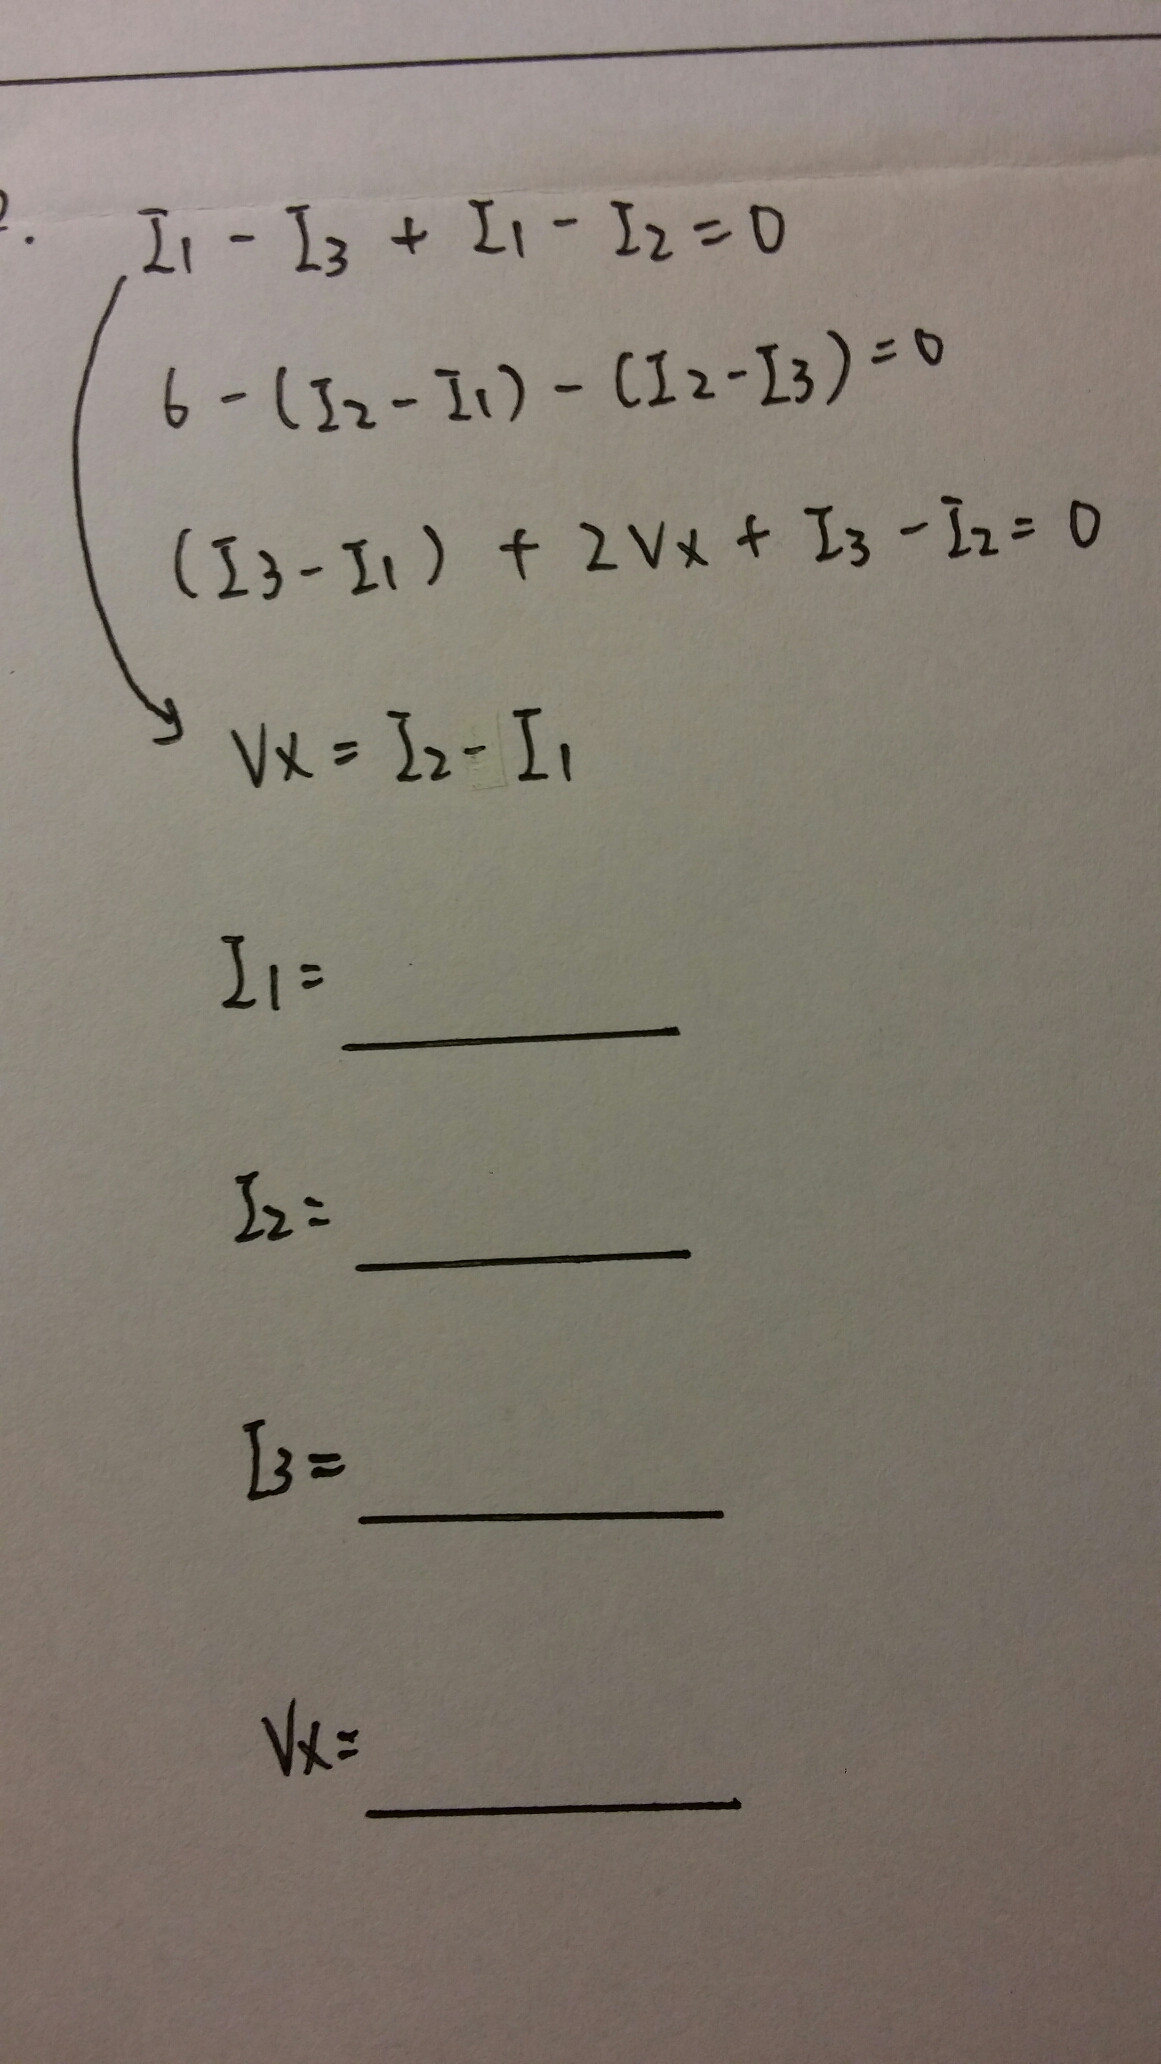 2. I1 - I3 + I1 - I2 = 0
6 - (I2 - I1) - (I2 - I3) = 0
(I3 - I1) + 2Vx + I3 - I2 = 0
Vx = I2 - I1
I1 =
I2 =
I3 =
Vx =